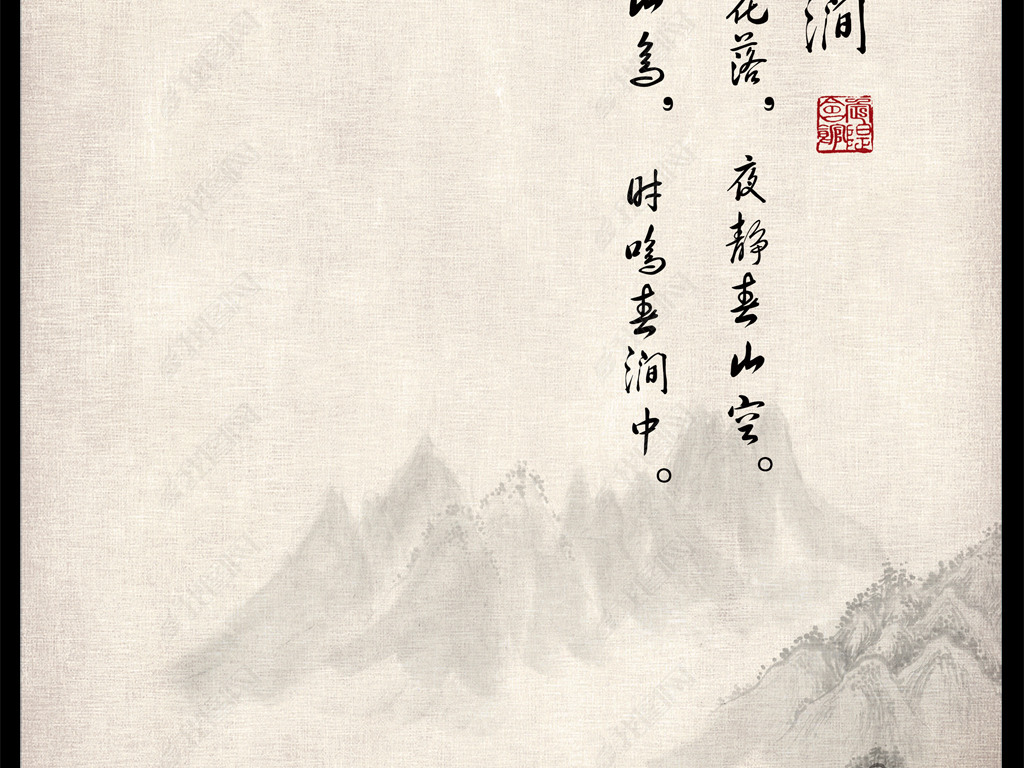 涧
花落，夜静春山空。
山鸟，时鸣春涧中。